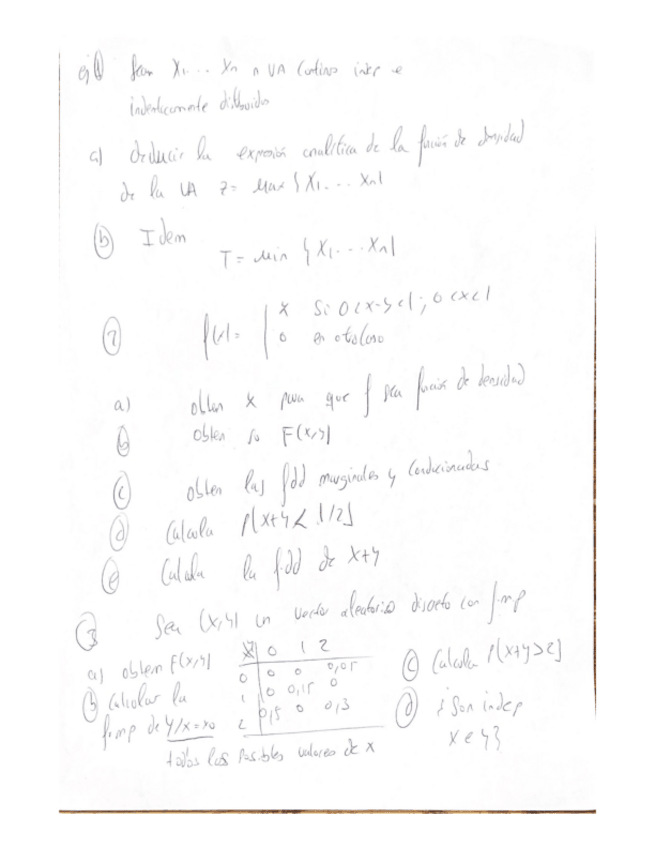 ej 1 Sean X1... Xn n VA continuas indep e
identicamente distribuidas
a) deducir la expresión analítica de la función de densidad
de la VA Z = Max { X1... Xn }
b Idem
T = Min { X1... Xn }
2 f(x) = { k Si 0<x-y<1; 0<x<1
0 en otro caso
a) obten k para que f sea función de densidad
b obten su F(x,y)
c obten las fdd marginales y condicionadas
d Calcula P[X+Y < 1/2]
e Calcula la f.dd de X+Y
3 Sea (X,Y) un vector aleatorio discreto con f.m.p
a) obten F(x,y)
b Calcular la
f.m.p de Y/X=x0
todos los posibles valores de X
0 1 2
0 0 0 0,05
1 0 0,15 0
2 0,5 0 0,3
c Calcula P[X+Y>2]
d ¿Son indep
X e Y?